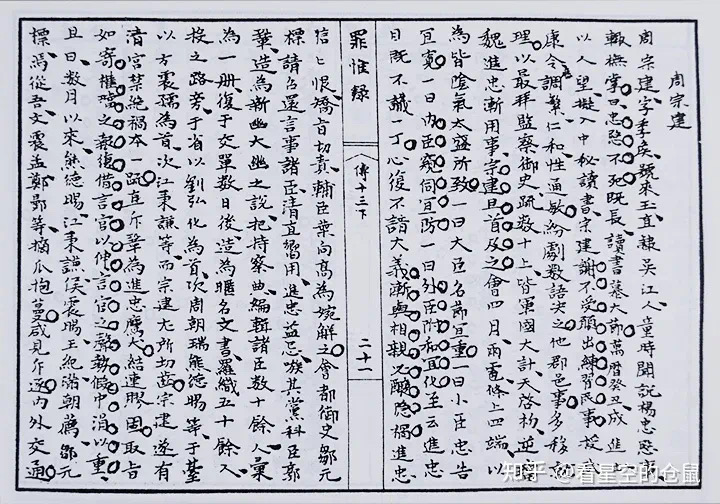 周宗建
周宗建字季侯號來玉直隸吳江人童時聞說楊忠愍事
輙撫掌曰忠愍不死既長讀書慕大節萬曆癸丑成進士
以人望擬入中秘讀書宗建謝不受願出練習民事授武
康令調繁仁和性通敏紛劇數語尖之他郡邑事多移就
理以最拜監察御史疏數十上皆軍國大計天啓初逆璫
魏進忠漸用事宗建旦首及之會四月雨雹條上四端以
為皆陰氣太盛所致一曰大臣名節宜重一曰小臣忠告
宜寬一曰內臣窺伺宜防一曰外臣附和宜化至云進忠
目既不識一丁心復不諳大義漸與相親乂釀隐禍進忠
罪惟錄
傳十三下
二十一
信上恨矯旨切責輔臣葉向髙為婉解之會都御史鄒元
標請召還言事諸臣清直嚮用進忠益忌嗾其黨科臣郭
鞏造為新幽大幽之說把持察典編輯諸臣數十餘人彙
為一册復于交單數日後造為匿名文書羅織五十餘人
投之路旁于省以劉弘化為首次周朝瑞熊德陽等于臺
以方震孺為首次江秉謙等而宗建尤所切齒宗建遂有
清宮禁絶禍本一疏直斥鞏為進忠鷹犬結連膠固取旨
如寄摧璫之報復借言官以伸言官之聲勢假中涓以重
且日數月以來熊德陽江秉謙侯震暘王紀滿朝薦鄒元
標馮從吾文震孟鄭鄤等摘瓜抱蔓咸見斥逐內外交通
知乎 @看星空的仓鼠